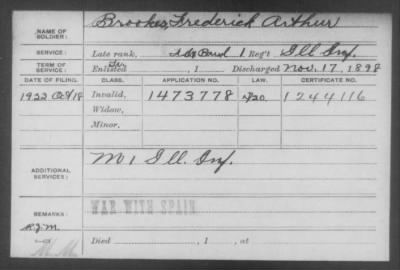 Brookes, Frederick Arthur
NAME OF SOLDIER:
SERVICE: Late rank, Band 1 Reg't Ill Inf.
TERM OF SERVICE: Enlisted , 1 Discharged Nov. 17, 1898
DATE OF FILING. CLASS. APPLICATION NO. LAW. CERTIFICATE NO.
1922 Oct 18 Invalid, 1473778 1244116
Widow,
Minor,
ADDITIONAL SERVICES: M 1 Ill. Inf.
WAR WITH SPAIN
REMARKS:
R.J.M.
M.M.
Died , 1 , at